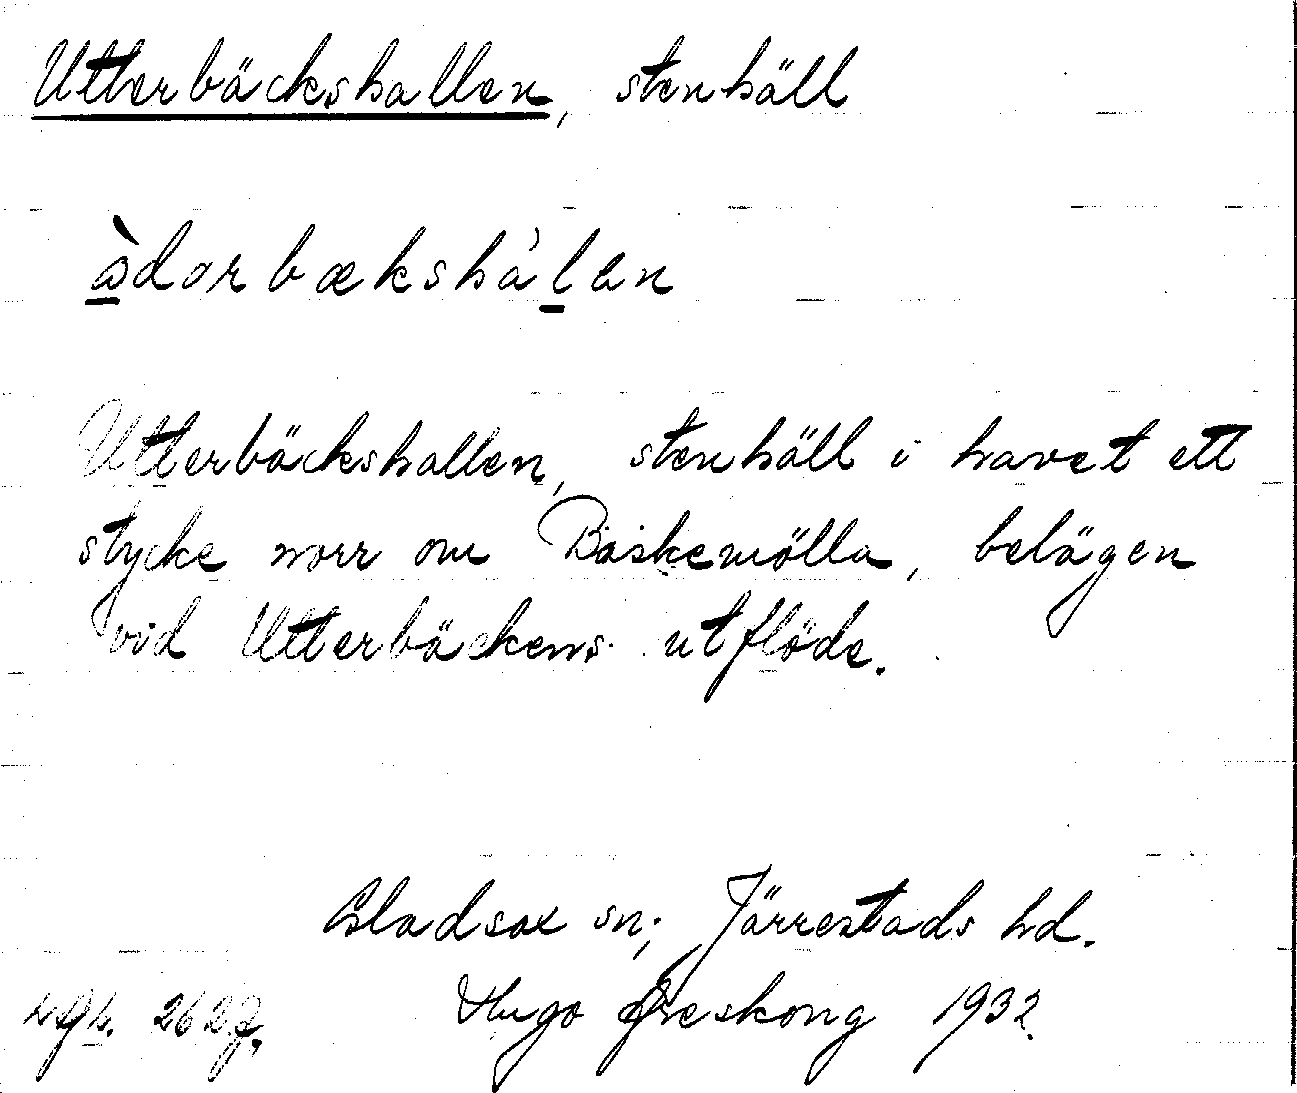 Utterbäckshallen, stenhäll
àdorbækshàlen
Utterbäckshallen, stenhäll i havet ett
stycke norr om Baskemölla, belägen
vid Utterbäckens utflöde.
Gladsax sn; Järrestads hd.
Hugo Areskoug 1932.